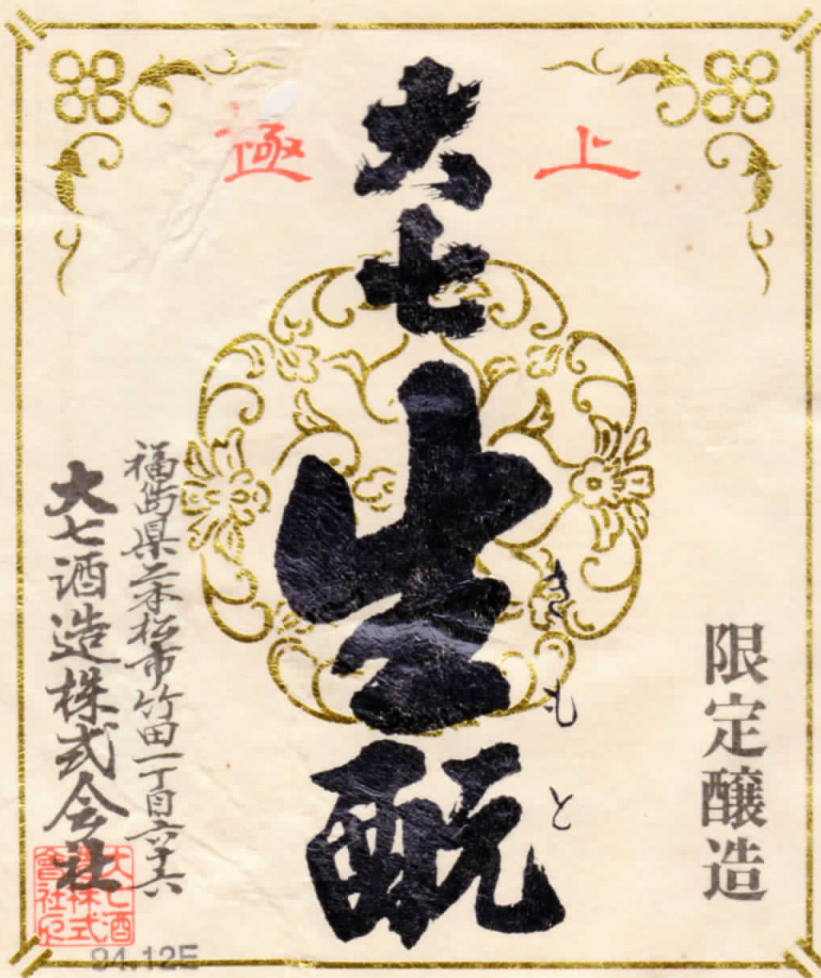 極上
大七
生酛
きもと
限定醸造
福島県二本松市竹田一丁目六十六
大七酒造株式会社
大七酒造株式會社印
94.12E